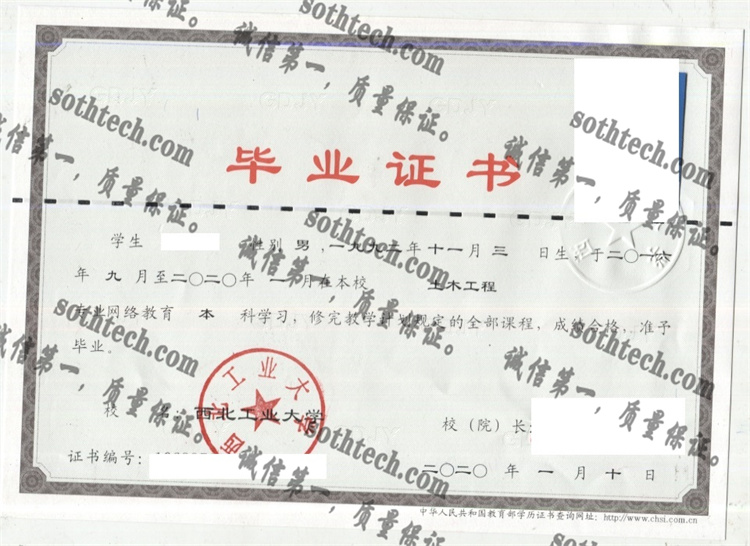 sothtech.com
诚信第一，质量保证。
sothtech.com
诚信第一，质量保证。
sothtech.com
诚信第一，质量保证。
毕业证书
sothtech.com
诚信第一，质量保证。
学生 性别 男，一九九三年 十一月 三 日生，于二〇一六
年 九 月至二〇二〇年 一 月在本校 土木工程
专业网络教育 本 科学习，修完教学计划规定的全部课程，成绩合格，准予
毕业。
sothtech.com
诚信第一，质量保证。
sothtech.com
诚信第一，质量保证。
西北工业大学
校 名：西北工业大学
校（院）长：
证书编号：
二〇二〇 年 一 月 十 日
sothtech.com
诚信第一，质量保证。
中华人民共和国教育部学历证书查询网址：http://www.chsi.com.cn